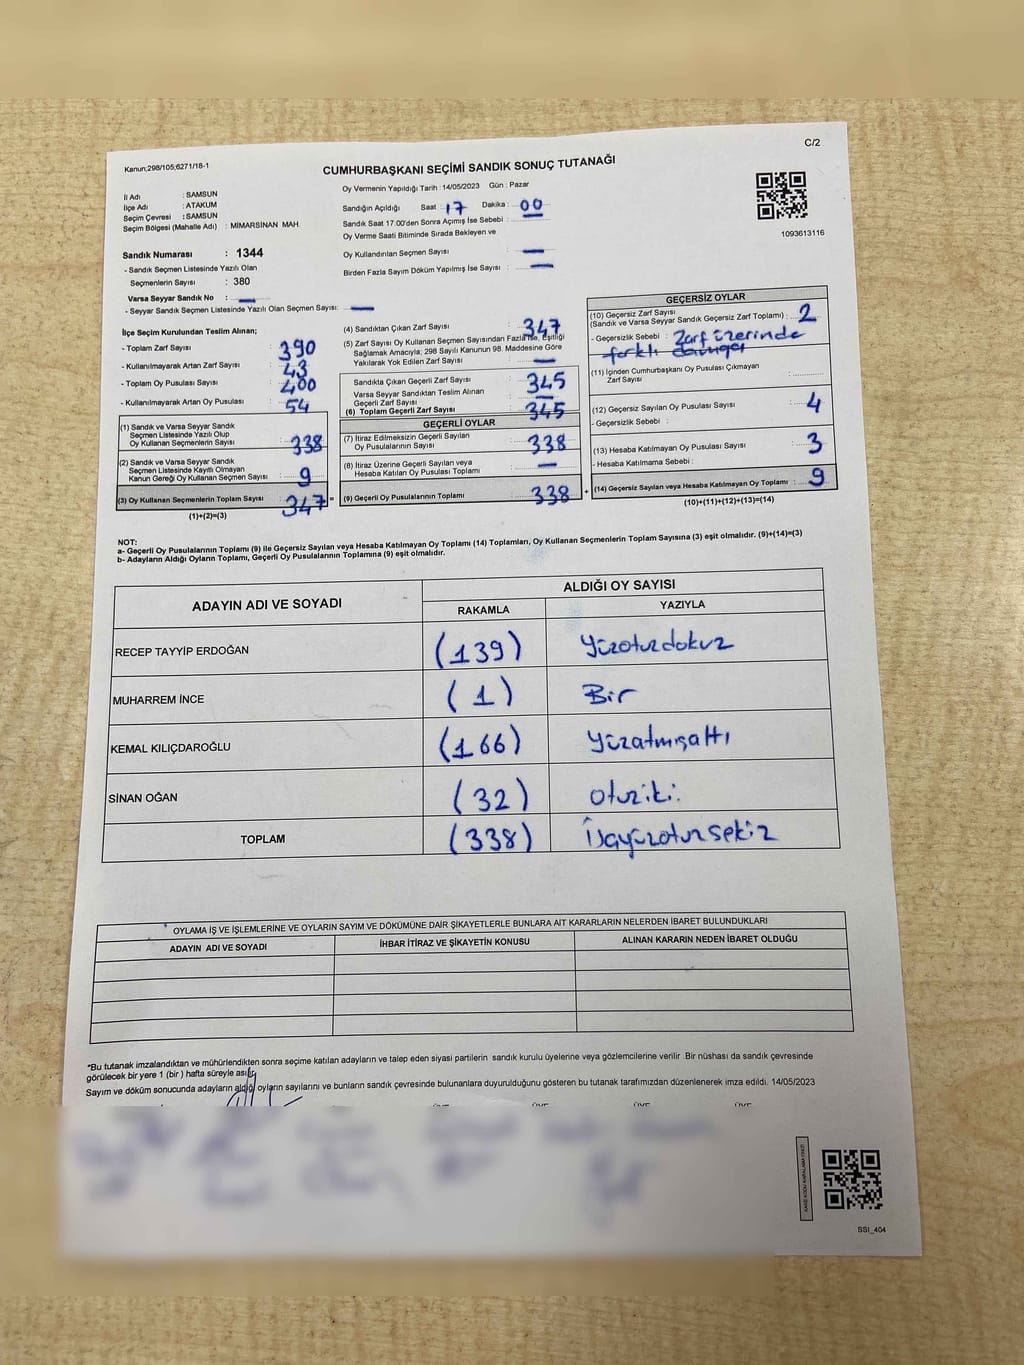 Kanun;298/105;6271/18-1
C/2
CUMHURBAŞKANI SEÇİMİ SANDIK SONUÇ TUTANAĞI
İl Adı : SAMSUN
İlçe Adı : ATAKUM
Seçim Çevresi : SAMSUN
Seçim Bölgesi (Mahalle Adı) : MİMARSİNAN MAH.
Oy Vermenin Yapıldığı Tarih : 14/05/2023 Gün : Pazar
Sandığın Açıldığı Saat : 17 Dakika : 00
Sandık Saat 17:00'den Sonra Açımış İse Sebebi :
Oy Verme Saati Bitiminde Sırada Bekleyen ve
Oy Kullandırılan Seçmen Sayısı : —
Birden Fazla Sayım Döküm Yapılmış İse Sayısı : —
1093613116
Sandık Numarası : 1344
- Sandık Seçmen Listesinde Yazılı Olan
Seçmenlerin Sayısı : 380
Varsa Seyyar Sandık No : —
- Seyyar Sandık Seçmen Listesinde Yazılı Olan Seçmen Sayısı: —
İlçe Seçim Kurulundan Teslim Alınan;
- Toplam Zarf Sayısı : 390
- Kullanılmayarak Artan Zarf Sayısı : 43
- Toplam Oy Pusulası Sayısı : 400
- Kullanılmayarak Artan Oy Pusulası : 54
(1) Sandık ve Varsa Seyyar Sandık
Seçmen Listesinde Yazılı Olup
Oy Kullanan Seçmenlerin Sayısı : 338
(2) Sandık ve Varsa Seyyar Sandık
Seçmen Listesinde Kayıtlı Olmayan
Kanun Gereği Oy Kullanan Seçmen Sayısı : 9
(3) Oy Kullanan Seçmenlerin Toplam Sayısı : 347 =
(1)+(2)=(3)
(4) Sandıktan Çıkan Zarf Sayısı : 347
(5) Zarf Sayısı Oy Kullanan Seçmen Sayısından Fazla İse, Eşitliği
Sağlamak Amacıyla; 298 Sayılı Kanunun 98. Maddesine Göre
Yakılarak Yok Edilen Zarf Sayısı : —
Sandıkta Çıkan Geçerli Zarf Sayısı : 345
Varsa Seyyar Sandıktan Teslim Alınan
Geçerli Zarf Sayısı : —
(6) Toplam Geçerli Zarf Sayısı : 345
GEÇERLİ OYLAR
(7) İtiraz Edilmeksizin Geçerli Sayılan
Oy Pusulalarının Sayısı : 338
(8) İtiraz Üzerine Geçerli Sayılan veya
Hesaba Katılan Oy Pusulası Toplamı : —
(9) Geçerli Oy Pusulalarının Toplamı : 338 +
GEÇERSİZ OYLAR
(10) Geçersiz Zarf Sayısı
(Sandık ve Varsa Seyyar Sandık Geçersiz Zarf Toplamı) : 2
- Geçersizlik Sebebi : Zarf üzerinde
farklı damga
(11) İçinden Cumhurbaşkanı Oy Pusulası Çıkmayan
Zarf Sayısı :
(12) Geçersiz Sayılan Oy Pusulası Sayısı : 4
- Geçersizlik Sebebi :
(13) Hesaba Katılmayan Oy Pusulası Sayısı : 3
- Hesaba Katılmama Sebebi :
(14) Geçersiz Sayılan veya Hesaba Katılmayan Oy Toplamı : 9
(10)+(11)+(12)+(13)=(14)
NOT:
a- Geçerli Oy Pusulalarının Toplamı (9) ile Geçersiz Sayılan veya Hesaba Katılmayan Oy Toplamı (14) Toplamları, Oy Kullanan Seçmenlerin Toplam Sayısına (3) eşit olmalıdır. (9)+(14)=(3)
b- Adayların Aldığı Oyların Toplamı, Geçerli Oy Pusulalarının Toplamına (9) eşit olmalıdır.
ADAYIN ADI VE SOYADI ALDIĞI OY SAYISI
RAKAMLA YAZIYLA
RECEP TAYYİP ERDOĞAN (139) Yüzotuzdokuz
MUHARREM İNCE (1) Bir
KEMAL KILIÇDAROĞLU (166) Yüzatmışaltı
SİNAN OĞAN (32) Otuziki.
TOPLAM (338) Üçyüzotuzsekiz
OYLAMA İŞ VE İŞLEMLERİNE VE OYLARIN SAYIM VE DÖKÜMÜNE DAİR ŞİKAYETLERLE BUNLARA AİT KARARLARIN NELERDEN İBARET BULUNDUKLARI
ADAYIN ADI VE SOYADI İHBAR İTİRAZ VE ŞİKAYETİN KONUSU ALINAN KARARIN NEDEN İBARET OLDUĞU
*Bu tutanak imzalandıktan ve mühürlendikten sonra seçime katılan adayların ve talep eden siyasi partilerin sandık kurulu üyelerine veya gözlemcilerine verilir. Bir nüshası da sandık çevresinde
görülecek bir yere 1 (bir) hafta süreyle asılır.
Sayım ve döküm sonucunda adayların aldığı oyların sayılarını ve bunların sandık çevresinde bulunanlara duyurulduğunu gösteren bu tutanak tarafımızdan düzenlenerek imza edildi. 14/05/2023
SSI_404